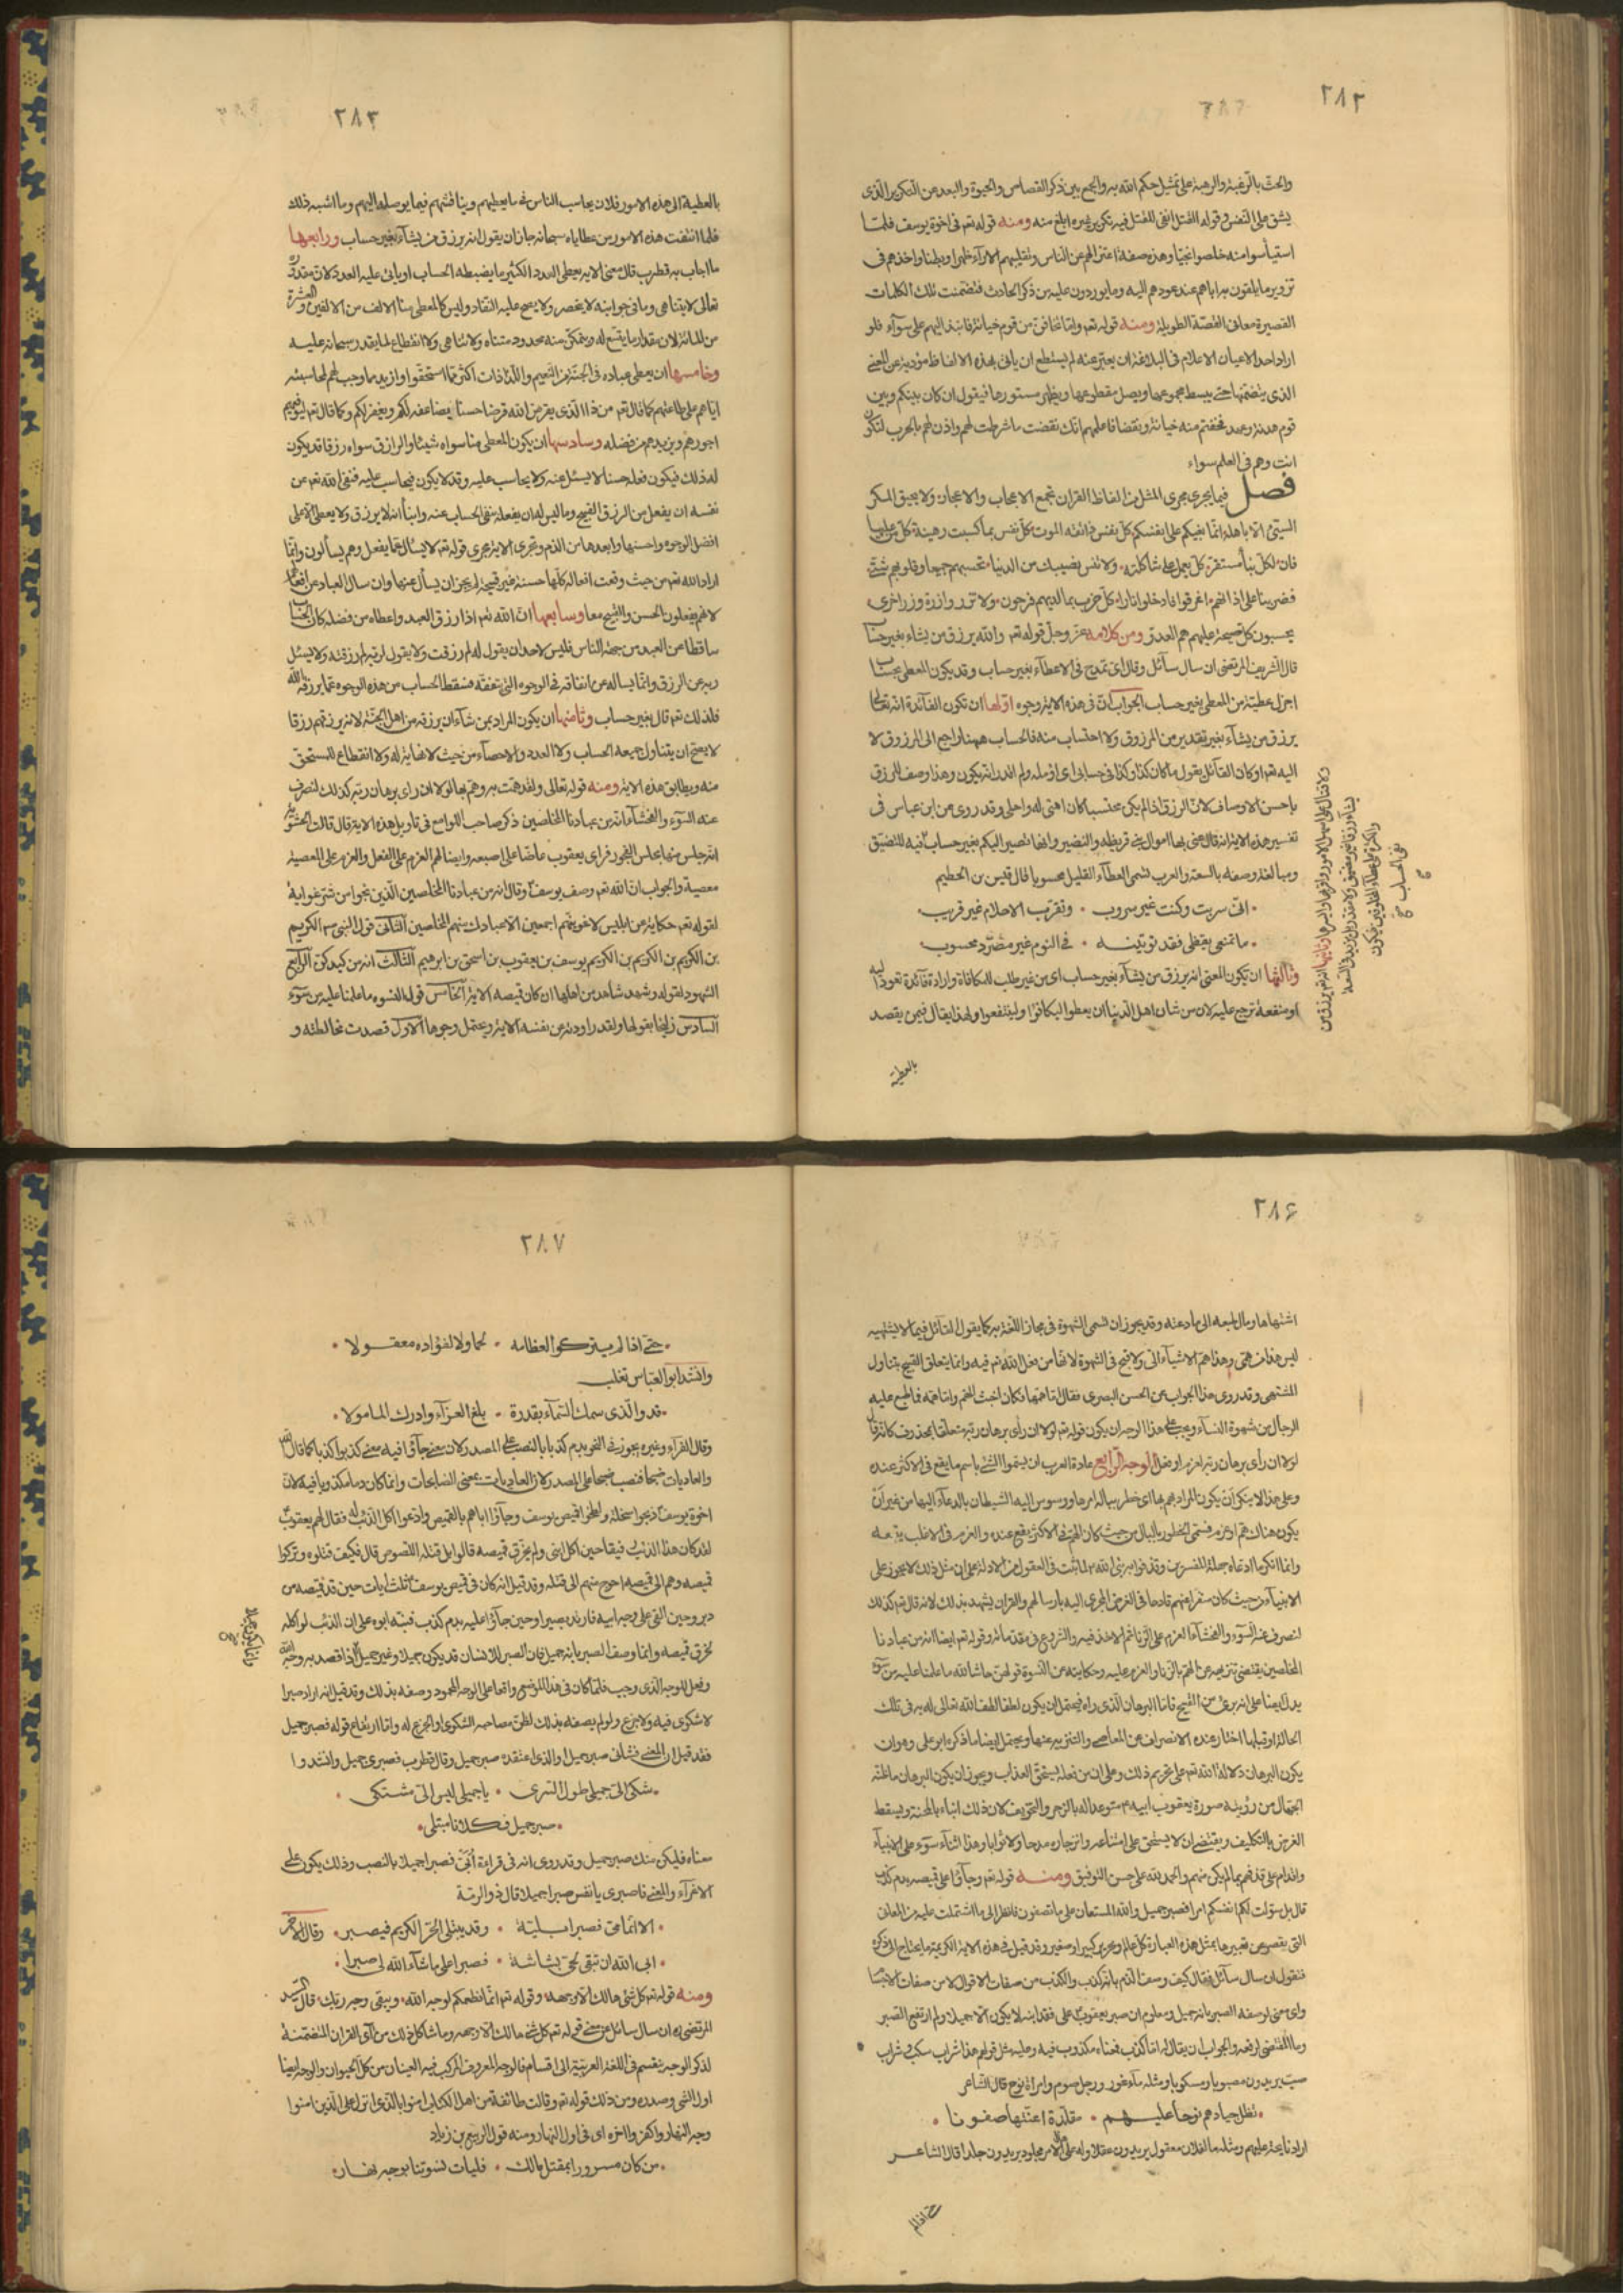 ٢٨٢
والحث بالرغبة والرهبة على تمثيل حكم الله به والجمع بين ذكر القصاص والحيوة والبعد من التكرير الذى
يشق على النفس وقوله القتل انفى للقتل فيه تكرير غيره ابلغ منه ومنه قوله تعه فى اخوة يوسف فلما
استيأسوا منه خلصوا نجيا وهذه صفة اعتزالهم عن الناس وتقليبهم الآراء ظهرا وبطنا واخذهم فى
تزوير ما يلقون به اباهم عند عودهم اليه وما يوردون عليه من ذكر الحادث فتضمنت تلك الكلمات
القصيرة معانى القصة الطويلة ومنه قوله تعه واما تخافن من قوم خيانة فانبذ اليهم على سوآء فلو
اراد احد الاعيان الاعلام فى البلاغة ان يعبر عنه لم يستطع ان ياتى بهذه الالفاظ مؤدية عن المعنى
الذى يتضمنها حتى يبسط مجموعها ويصل مقطوعها ويظهر مستورها فيقول ان كان بينكم وبين
قوم هدنة وعهد فخفتم منه خيانة ونقضا فاعلمهم انك نقضت ما شرطت لهم واذن لهم بالحرب لتكون
انت وهم فى العلم سواء
فصل فيما يجرى مجرى المثل من الفاظ القران يجمع الاعجاب والاعجاز ولا يحيق المكر
السيئ الا باهله انما بغيكم على انفسكم كل نفس ذائقة الموت كل نفس بما كسبت رهينة كل من عليها
فان لكل نبأ مستقر كل يعمل على شاكلته ولا تنس نصيبك من الدنيا تحسبهم جميعا وقلوبهم شتى
فضربنا على اذانهم اغرقوا فادخلوا نارا كل حزب بما لديهم فرحون ولا تزر وازرة وزر اخرى
يحسبون كل صيحة عليهم هم العدو ومن كلامه عز وجل قوله تعه والله يرزق من يشاء بغير حساب
قال الشريف المرتضى ان سال سآئل وقال اى تمدح فى الاعطآء بغير حساب وقد يكون المعطى بحساب
اجزل عطية من المعطى بغير حساب الجواب ان فى هذه الاية وجوه اولها ان تكون الفآئدة انه تعالى
يرزق من يشآء بغير تقدير من المرزوق ولا احتساب منه فالحساب ههنا راجع الى المرزوق لا
اليه تعه اوكان القآئل يقول ما كان كذا وكذا فى حسابى اى لم اؤمله ولم اقدر انه يكون وهذا وصف للرزق
باحسن الاوصاف لان الرزق اذا لم يكن محتسبا كان اهنى له واحلى وقد روى عن ابن عباس فى
تفسير هذه الاية انه قال عنى بها اموال بنى قريظة والنضير وانها تصير اليكم بغير حساب فيه للتضيق
ومبالغة وصفه بالسعة والعرب تسمى العطآء القليل محسوبا قال قيس بن الحطيم
انى سريت وكنت غير سروب وتقرب الاحلام غير قريب
ما تمنى يقظى فقد توتينه فى النوم غير مصرد محسوب
وثالثها ان يكون المعنى انه يرزق من يشآء بغير حساب اى من غير طلب للمكافاة وارادة فآئدة تعود اليه
او منفعة ترجع عليه لان من شان اهل الدنيا ان يعطوا ليكافؤا ولينتفعوا ولهذا يقال فيمن يقصد
بالعطية
وثانيها انه تعه يرزق من
يشآء رزقا غير مضيق ولا مقدر
نفى الحساب
٢٨٣
بالعطية الى هذه الامور فلان يحاسب الناس فى ما يعطيهم ويناقشهم فيما يوصله اليهم وما اشبه ذلك
فلما انتفت هذه الامور من عطاياه سبحانه جاز ان يقول انه يرزق من يشآء بغير حساب ورابعها
ما اجاب به قطرب قال معنى الاية يعطى العدد الكثير ما يضبطه الحساب او ياتى عليه العدد لان مقدوره
تعالى لا يتناهى وما فى خزائنه لا ينحصر ولا يصح عليه النفاد وليس كالمعطى منا الالف من الالفين والعشرة
من المائة لان مقدار ما يتسع له ويتمكن منه محدود متناه ولا تناهى ولا انقطاع لما يقدر سبحانه عليه
وخامسها ان يعطى عباده فى الجنة من النعيم واللذات اكثر مما استحقوا وازيد مما وجب لهم لمحاسبته
اياهم على طاعتهم كما قال تعه من ذا الذى يقرض الله قرضا حسنا يضاعفه لكم ويغفر لكم وكما قال تعه ليوفيهم
اجورهم ويزيدهم من فضله وسادسها ان يكون المعطى منا سواه شيئا والرازق سواه رزقا قد يكون
له ذلك فيكون فعله حسنا لا يسئل عنه ولا يحاسب عليه وقد لا يكون فيحاسب عليه فنفى الله تعه عن
نفسه ان يفعل من الرزق القبيح وما ليس له ان يفعله بنفى الحساب عنه وانبأ انه لا يرزق ولا يعطى الا على
افضل الوجوه واحسنها وابعدها من الذم وتجرى الاية مجرى قوله تعه لا يسئال عما يفعل وهم يسألون وانما
اراد الله تعه من حيث وقعت افعاله كلها حسنة غير قبيحة لم يجز ان يسأل عنها وان سال العباد عن افعالهم
لانهم يفعلون الحسن والقبيح معا وسابعها ان الله تعه اذا رزق العبد واعطاه من فضله كان الحساب
ساقطا عن العبد من جهة الناس فليس لاحد ان يقول له لم رزقت ولا يقول لربه لم رزقته ولا يسئل
ربه عن الرزق وانما يساله عن انفاقه فى الوجوه التى ينفقه فسقط الحساب من هذه الوجوه عما يرزقه الله
فلذلك تعه قال بغير حساب وثامنها ان يكون المراد بمن شآء ان يرزقه من اهل الجنة لانه يرزقهم رزقا
لا يصح ان يتناول جميعه الحساب ولا العدد والاحصآء من حيث لا نهاية له ولا انقطاع للمستحق
منه ويطابق هذه الاية ومنه قوله تعالى ولقد همت به وهم بها لولا ان راى برهان ربه كذلك لنصرف
عنه السوء والفحشآء انه من عبادنا المخلصين ذكر صاحب اللوامع فى تاويل هذه الاية قال قالت الحشوية
انه جلس منها مجلس الفجور فراى يعقوب عاضا على اصبعه وايضا لهم العزم على الفعل والعزم على المعصية
معصية والجواب ان الله تعه وصف يوسف وقال انه من عبادنا المخلصين الذين نجوا من شر غواية
لقوله تعه حكاية عن ابليس لاغوينهم اجمعين الا عبادك منهم المخلصين الثانى قول النبى الكريم
بن الكريم بن الكريم بن الكريم يوسف بن يعقوب بن اسحق بن ابرهيم الثالث انه من كيدكن الرابع
الشهود لقوله وشهد شاهد من اهلها ان كان قميصه الاية الخامس قول النسوة ما علمنا عليه من سوء
السادس زليخا بقولها ولقد راودته عن نفسه الاية ويحتمل وجوها الاول قصدت مخالطته و
٢٨۶
اشتهاها ومال طبعه الى ما دعته وقد يجوز ان تسمى الشهوة فى مجاز اللغة به كما يقول القآئل فيما لا يشتهيه
ليس هذا من همى وهذا اهم الاشيآء الى ولا قبح فى الشهوة لانها من فعل الله تعه فيه وانما يتعلق القبح بتناول
المشتهى وقد روى هذا الجواب عن الحسن البصرى فقال اما همها فكان اخبث الهم واما همه فما طبع عليه
الرجال من شهوة النسآء ويجب على هذا الوجه ان يكون قوله تعه لولا ان رأى برهان ربه متعلقا بمحذوف كانه قال
لولا ان رأى برهان ربه لعزم او فعل الوجه الرابع عادة العرب ان يسموا الشئ باسم ما يقع فى الاكثر عنده
وعلى هذا لا ينكر ان يكون المراد بهم بها اى خطر بباله امرها ووسوس اليه الشيطان بالدعآء اليها من غير ان
يكون هناك هم او عزم فسمى الخطور بالبال من حيث كان الهم فى الاكثر يقع عنده والعزم فى الاغلب يتبعه
وانما انكرنا ادعاه جهلة المفسرين وقذفوا به نبى الله لما ثبت فى العقول من الادلة على ان مثل ذلك لا يجوز على
الانبيآء من حيث كان منفرا عنهم قادحا فى الغرض المجرى اليه بارسالهم والقران يشهد بذلك لانه قال تعه كذلك
لنصرف عنه السوء والفحشآء العزم على الزنا ثم الاخذ فيه والشروع فى مقدماته وقوله تعه ايضا انه من عبادنا
المخلصين يقتضى تنزيهه عن الهم بالزنا والعزم عليه وحكايته عن النسوة قولهن حاشا لله ما علمنا عليه من سوء
يدل ايضا على انه برئ من القبيح فاما البرهان الذى راه فيحتمل ان يكون لطفا لطف الله تعالى له به فى تلك
الحالة او قبلها اختار عنده الانصراف عن المعاصى والتنزيه عنها ويحتمل ايضا ما ذكره ابو على وهو ان
يكون البرهان دلالة الله تعه على تحريم ذلك وعلى ان من فعله استحق العذاب ويجوز ان يكون البرهان ما ظنه
الجهال من رؤيته صورة يعقوب ابيه متوعدا له بالزجر والتخويف لان ذلك ابنآء بالمحنة ويسقط
الغرض بالتكليف ويقتضى ان لا يستحق على امتناعه وانزجاره مدحا ولا ثوابا وهذا اثنآء سوء على الانبيآء
واقدام على قذفهم بما لم يكن منهم والحمد لله على حسن التوفيق ومنه قوله تعه وجآؤا على قميصه بدم كذب
قال بل سولت لكم انفسكم امرا فصبر جميل والله المستعان على ما تصفون فانظر الى ما اشتملت عليه من المعان
التى يقصر عن تعبيرها بمثل هذه العبارة كل عالم ونحرير كبير او صغير وقد قيل فى هذه الاية الكريمة ما يحتاج الى ذكره
فنقول ان سال سآئل فقال كيف وصف الدم بانه كذب والكذب من صفات الاقوال لا من صفات الاجسام
واى معنى لوصفه الصبر بانه جميل ومعلوم ان صبر يعقوب على فقد ابنه لا يكون الا جميلا ولم ارتفع الصبر
وما المقتضى لرفعه والجواب ان يقال له اما كذب فمعناه مكذوب فيه وعليه مثل قولهم هذا شراب سكب وشراب
صب يريدون مصبوبا ومسكوبا ومثله مآء غور ورجل صوم وامراة نوح قال الشاعر
تظل جيادهم نوحا عليهم مقلدة اعنتها صفونا
اراد نايحة عليهم ومثله ما لفلان معقول يريدون عقلا وله على الامر مجلود يريدون جلدا قال الشاعر
حتى اذا لم
٢٨٧
حتى اذا لم يتركوا لعظامه لحما ولا لفؤاده معقولا
وانشد ابو العباس تغلب
قد والذى سمك السمآء بقدرة بلغ العزآء وادرك المامولا
وقال الفرآء وغيره يجوز فى النحو بدم كذبا بالنصب على المصدر لان معنى جآؤا فيه معنى كذبوا كذبا كما قال الله
والعاديات ضبحا فنصب ضبحا على المصدر لان العاديات بمعنى الضابحات وانما كان دما مكذوبا فيه لان
اخوة يوسف ذبحوا سخلة ولطخوا قميص يوسف وجآؤا اباهم بالقميص وادعوا اكل الذئب له فقال لهم يعقوب
لقد كان هذا الذئب رفيقا حين اكل ابنى ولم يخرق قميصه قالوا بل قتله اللصوص قال فكيف قتلوه وتركوا
قميصه وهم الى قميصه احوج منهم الى قتله وقد قيل انه كان فى قميص يوسف ثلث ايات حين قد قميصه من
دبر وحين القى على وجه ابيه فارتد بصيرا وحين جآؤا عليه بدم كذب فنبه ابوه على ان الذئب لو اكله
لخرق قميصه وانما وصف الصبر بانه جميل فان الصبر للانسان قد يكون جميلا وغير جميل اذا قصد به وجه الله
وفعل للوجه الذى وجب فلما كان فى هذا الموضع واقعا على الوجه المحمود وصفه بذلك وقد قيل انه اراد صبرا
لا شكوى فيه ولا جزع ولو لم يصفه بذلك لظن مصاحبه الشكوى او الجزع له واما ارتفاع قوله فصبر جميل
فقد قيل ان المعنى فشأنى صبر جميل او الذى اعتقده صبر جميل وقال قطرب فصبرى جميل وانشدوا
شكى الى جملى طول السرى يا جملى ليس الى مشتكى
صبر جميل فكلانا مبتلى
معناه فليكن منك صبر جميل وقد روى انه فى قراءة ابى فصبرا جميلا بالنصب وذلك يكون على
الاغرآء والمعنى فاصبرى يا نفس صبرا جميلا قال ذو الرمة
الا انما مى فصبرا بلية وقد يبتلى الحر الكريم فيصبر وقال الاخر
ابى الله ان تبقى لحى بشاشة فصبرا على ما شآء الله لى صبرا
ومنه قوله تعه كل شئ هالك الا وجهه وقوله تعه انما نطعمكم لوجه الله ويبقى وجه ربك قال السيد
المرتضى ره ان سال سائل عن معنى قوله تعه كل شئ هالك الا وجهه وما شاكل ذلك من آى القران المتضمنة
لذكر الوجه ينقسم فى اللغة العربية الى اقسام فالوجه المعروف المركب فيه العينان من كل الحيوان والوجه ايضا
اول الشئ وصدره ومن ذلك قوله تعه وقالت طائفة من اهل الكتاب امنوا بالذى انزل على الذين امنوا
وجه النهار واكفروا اخره اى فى اول النهار ومنه قول الربيع بن زياد
من كان مسرورا بمقتل مالك فليات نسوتنا بوجه نهار